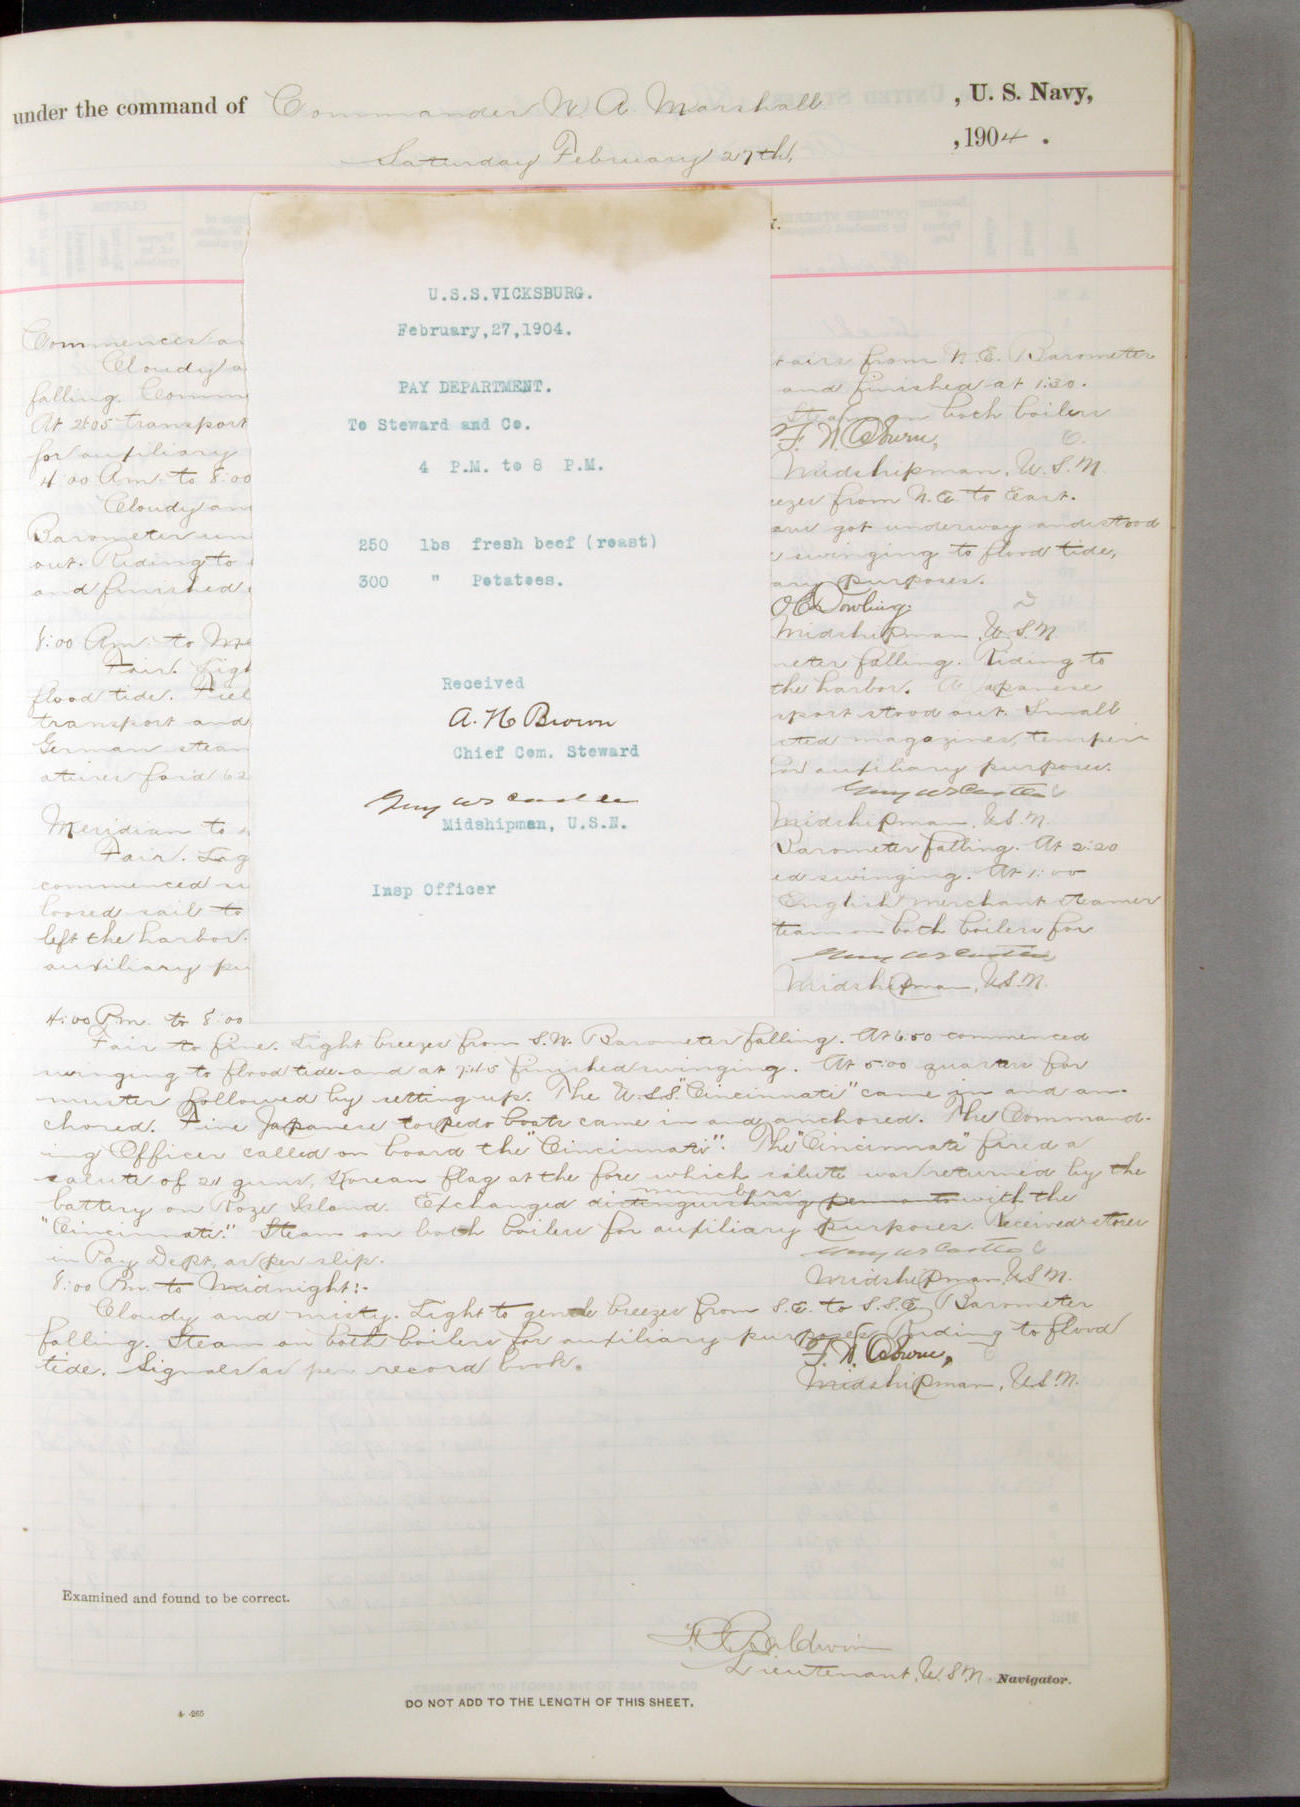 under the command of Commander W. A. Marshall, U. S. Navy,
Saturday February 27th, , 1904.
U.S.S.VICKSBURG.
February,27,1904.
PAY DEPARTMENT.
To Steward and Co.
4 P.M. to 8 P.M.
250 lbs fresh beef (roast)
300 " Potatoes.
Received
A. H. Brown
Chief Com. Steward
Guy W S Castle
Midshipman, U.S.N.
Insp Officer
Commences
Cloudy a airs from N. E. Barometer
falling. Comm and finished at 1:30.
At 2:05 transport Steam on both boilers
for auxiliary F. N. Osburn,
Midshipman, U.S.N.
4:00 Am. to 8:00
Cloudy an ezes from N.E. to East.
Barometer un got underway and stood
out. Riding to swinging to flood tide,
and finished ary purposes.
O Dowling.
8:00 Am. to Me Midshipman, U.S.N.
Fair. Ligh meter falling. Riding to
flood tide. the harbor. A Japanese
transport and sport stood out. Small
German steam cted magazines, temper
atures for'd 62 for auxiliary purposes.
Guy W S Castle
Meridian to Midshipman, U.S.N.
Fair. Barometer falling. At 2:20
commenced ed swinging. At 1:00
loosed sail to English merchant steamer
left the harbor. team on both boilers for
auxiliary pu Guy W S Castle
Midshipman, U.S.N.
4:00 Pm. to 8:00
Fair to fine. Light breezes from S.W. Barometer falling. At 6:50 commenced
swinging to flood tide and at 7:45 finished swinging. At 5:00 quarters for
muster followed by setting up. The U.S.S. "Cincinnati" came in and an-
chored. Five Japanese torpedo boats came in and anchored. The Command-
ing Officer called on board the "Cincinnati". The "Cincinnati" fired a
salute of 21 guns, Korean flag at the fore which salute was returned by the
numbers
battery on Roze Island. Exchanged distinguishing pennants with the
"Cincinnati." Steam on both boilers for auxiliary purposes. Received stores
in Pay Dept, as per slip. Guy W S Castle
8:00 Pm. to Midnight:- Midshipman, U.S.N.
Cloudy and misty. Light to gentle breezes from S.E. to S.S.E. Barometer
falling. Steam on both boilers for auxiliary purposes. Riding to flood
tide. Signals as per record book. F. N. Osburn,
Midshipman, U.S.N.
Examined and found to be correct.
Baldwin
Lieutenant, U.S.N. Navigator.
DO NOT ADD TO THE LENGTH OF THIS SHEET.